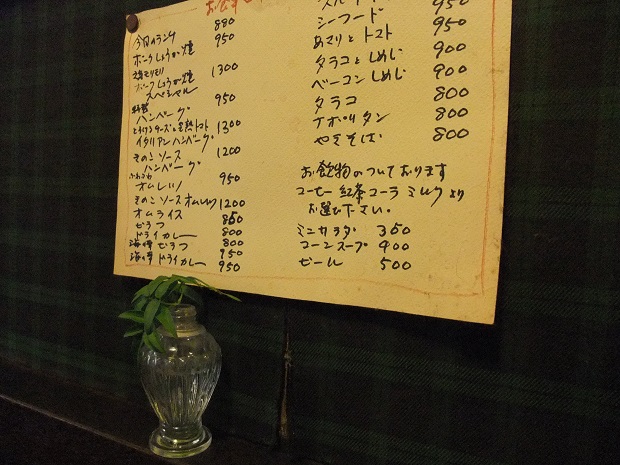 お食事
今日のランチ 880
ポークしょうが焼 950
ポークしょうが焼
スペシャル 1300
ハンバーグ 950
とろけるチーズと完熟トマト
イタリアンハンバーグ 1300
きのこソース
ハンバーグ 1200
ふわふわ
オムレツ 950
きのこソースオムレツ 1200
オムライス 850
ピラフ 800
ドライカレー 800
海の幸ピラフ 950
海の幸ドライカレー 950
950
シーフード 950
あさりとトマト 950
タラコとしめじ 900
ベーコンしめじ 900
タラコ 800
ナポリタン 800
やきそば 800
お飲物のついております
コーヒー 紅茶 コーラ ミルクより
お選び下さい。
ミニサラダ 350
コーンスープ 400
ビール 500